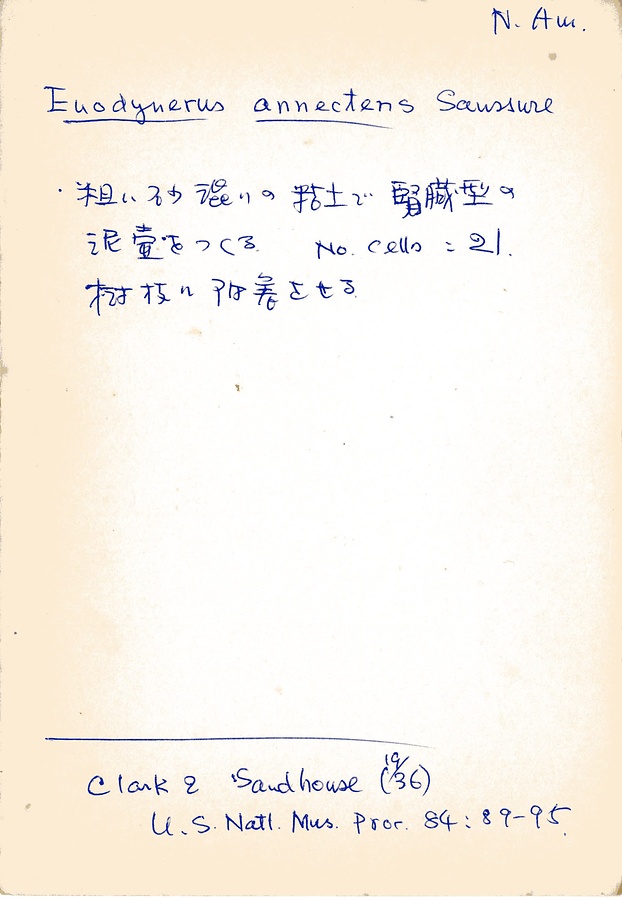 N. Am.
Euodynerus annectens Saussure
・粗い砂混りの粘土で腎臓型の
泥壷をつくる No. cells : 21.
樹枝に附着させる
Clark & Sandhouse (1936)
U.S. Natl. Mus. Proc. 84 : 89-95.